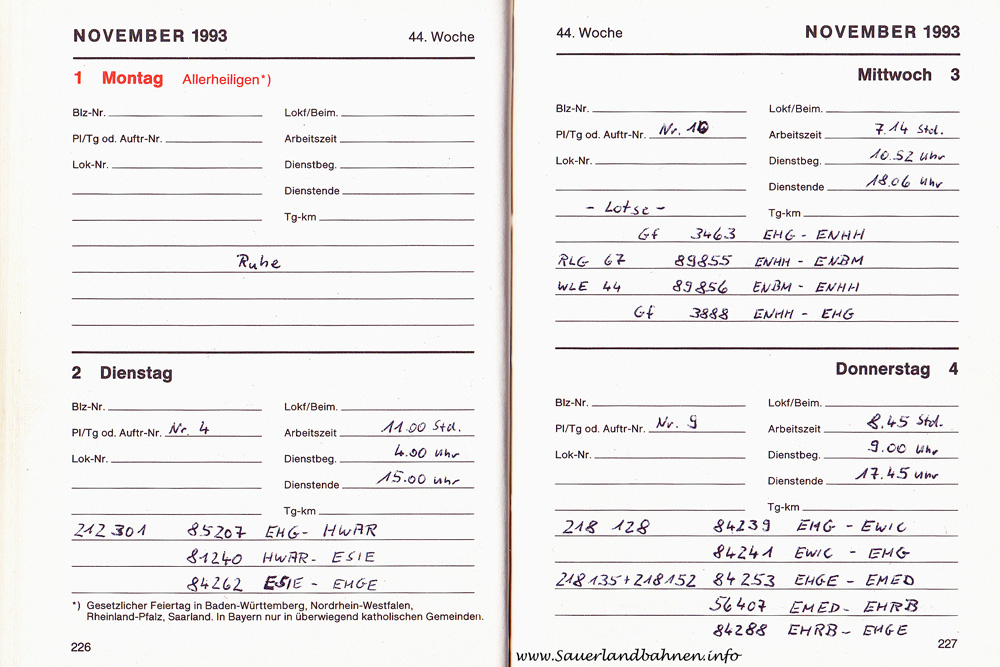 NOVEMBER 1993 44. Woche
1 Montag Allerheiligen*)
Blz-Nr. Lokf/Beim.
Pl/Tg od. Auftr-Nr. Arbeitszeit
Lok-Nr. Dienstbeg.
Dienstende
Tg-km
Ruhe
2 Dienstag
Blz-Nr. Lokf/Beim.
Pl/Tg od. Auftr-Nr. Nr. 4 Arbeitszeit 11.00 Std.
Lok-Nr. Dienstbeg. 4.00 Uhr
Dienstende 15.00 Uhr
Tg-km
212 301 85207 EHG - HWAR
81240 HWAR - ESIE
84262 ESIE - EHGE
*) Gesetzlicher Feiertag in Baden-Württemberg, Nordrhein-Westfalen,
Rheinland-Pfalz, Saarland. In Bayern nur in überwiegend katholischen Gemeinden.
226
44. Woche NOVEMBER 1993
Mittwoch 3
Blz-Nr. Lokf/Beim.
Pl/Tg od. Auftr-Nr. Nr. 10 Arbeitszeit 7.14 Std.
Lok-Nr. Dienstbeg. 10.52 Uhr
Dienstende 18.06 Uhr
- Lotse - Tg-km
Gf 3463 EHG - ENHH
RLG 67 89855 ENHH - ENBM
WLE 44 89856 ENBM - ENHH
Gf 3888 ENHH - EHG
Donnerstag 4
Blz-Nr. Lokf/Beim.
Pl/Tg od. Auftr-Nr. Nr. 9 Arbeitszeit 8.45 Std.
Lok-Nr. Dienstbeg. 9.00 Uhr
Dienstende 17.45 Uhr
Tg-km
218 128 84239 EHG - EWIC
84241 EWIC - EHG
218135+218152 84253 EHGE - EMED
56407 EMED - EHRB
84288 EHRB - EHGE
227
www.Sauerlandbahnen.info